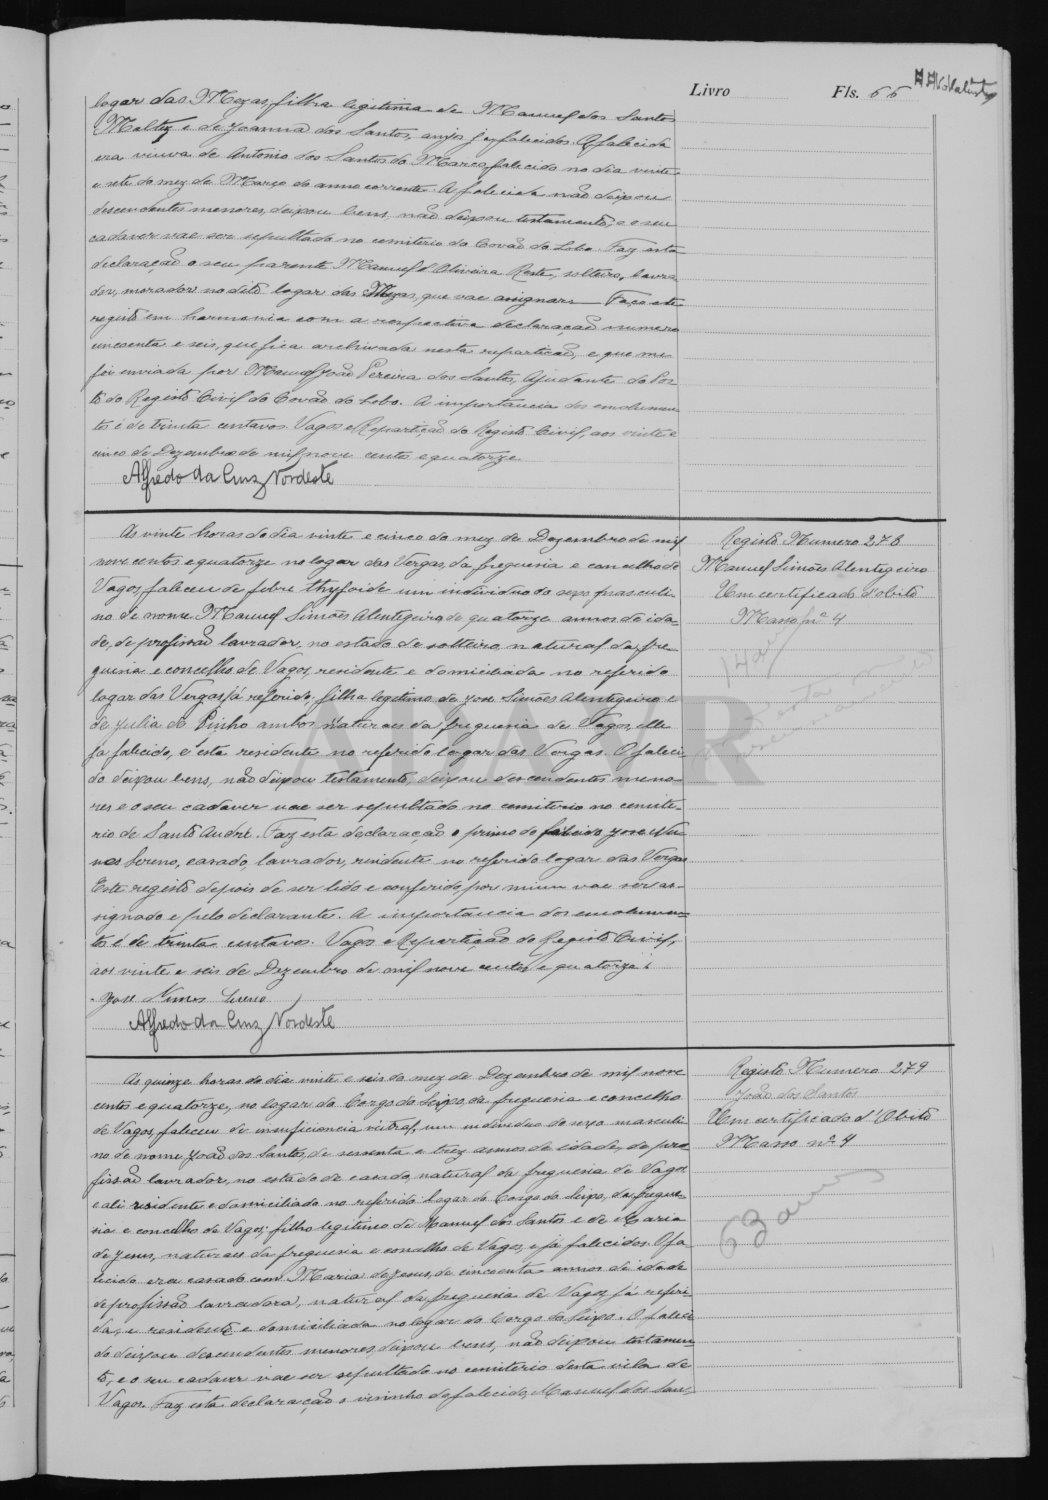 Livro Fls. 66
logar das Mezas, filha legitima de Manuel dos Santos
Maltez e de Joanna dos Santos, anjos já falecidos. A falecida
era viuva de Antonio dos Santos da Marca, falecido no dia vinte
e sete do mez de Março do anno corrente. A falecida não deixou
descendentes menores, deixou bens, não deixou testamento, e o seu
cadaver vae ser sepultado no cemiterio da Covão do Lobo. Faz esta
declaração o seu parente Manuel d'Oliveira Reste, solteiro, lavra-
dor, morador no dito logar das Mezas, que vae assignar. Faço este
registo em harmonia com a respectiva declaração numero
cincoenta e seis, que fica archivada nesta repartição, e que me
foi enviada por Manuel João Pereira dos Santos, Ajudante do Pos-
to do Registo Civil da Covão do Lobo. A importancia dos emolumen-
tos é de trinta centavos. Vagos e Repartição do Registo Civil, aos vinte e
cinco de Dezembro de mil nove centos e quatorze.
Alfredo da Cruz Nordeste
As vinte horas do dia vinte e cinco do mez de Dezembro de mil
nove centos e quatorze no logar das Vergas, da freguesia e concelho de
Vagos, faleceu de febre thyfoide um individuo do sexo masculi-
no de nome Manuel Simões Alentegeiro, de quatorze annos de ida-
de, de profissão lavrador, no estado de solteiro, natural da fre-
guesia e concelho de Vagos, residente e domiciliado no referido
logar das Vergas, já referido; filho legitimo de José Simões Alentegeiro e
de Julia de Pinho ambos naturaes da freguesia de Vagos, elle
já falecido, e esta residente no referido logar das Vergas. O faleci-
do deixou bens, não deixou testamento, deixou descendentes meno-
res e o seu cadaver vae ser sepultado no cemiterio no cemite-
rio de Santo André. Faz esta declaração o primo do falecido José Nu-
nes Sereno, casado, lavrador, residente no referido logar das Vergas
Este registo depois de ser lido e conferido, por mim vae ser as-
signado e pelo declarante. A importancia dos emolumen-
tos é de trinta centavos. Vagos e Repartição do Registo Civil,
aos vinte e seis de Dezembro de mil nove centos e quatorze.
José Nunes Sereno
Alfredo da Cruz Nordeste
Registo Numero 278
Manuel Simões Alentegeiro
Um certificado d'obito
Masso nº 4
14 annos
As quinze horas do dia vinte e seis do mez de Dezembro de mil nove
centos e quatorze, no logar da Corgo do Seixo, da freguesia e concelho
de Vagos, faleceu de insuficiencia mitral, um individuo do sexo masculi-
no de nome João dos Santos, de sessenta e trez annos de idade, de pro-
fissão lavrador, no estado de casado, natural da freguesia de Vagos
e ali residente e domiciliado no referido logar da Corgo do Seixo, da fregue-
sia e concelho de Vagos; filho legitimo de Manuel dos Santos e de Maria
de Jesus, naturaes da freguesia e concelho de Vagos, e já falecidos. O fa-
lecido era casado com Maria de Jesus, de cincoenta annos de idade
de profissão lavradora, natural da freguesia de Vagos, já referi-
da, e residente e domiciliada no logar da Corgo do Seixo. O faleci-
do deixou descendentes menores, deixou bens, não deixou testamen-
to, e o seu cadaver vae ser sepultado no cemiterio desta vila de
Vagos. Faz esta declaração o visinho do falecido, Manuel dos San-
Registo Numero 279
João dos Santos
Um certificado d'Obito
Masso nº 4
63 annos
ADAVR